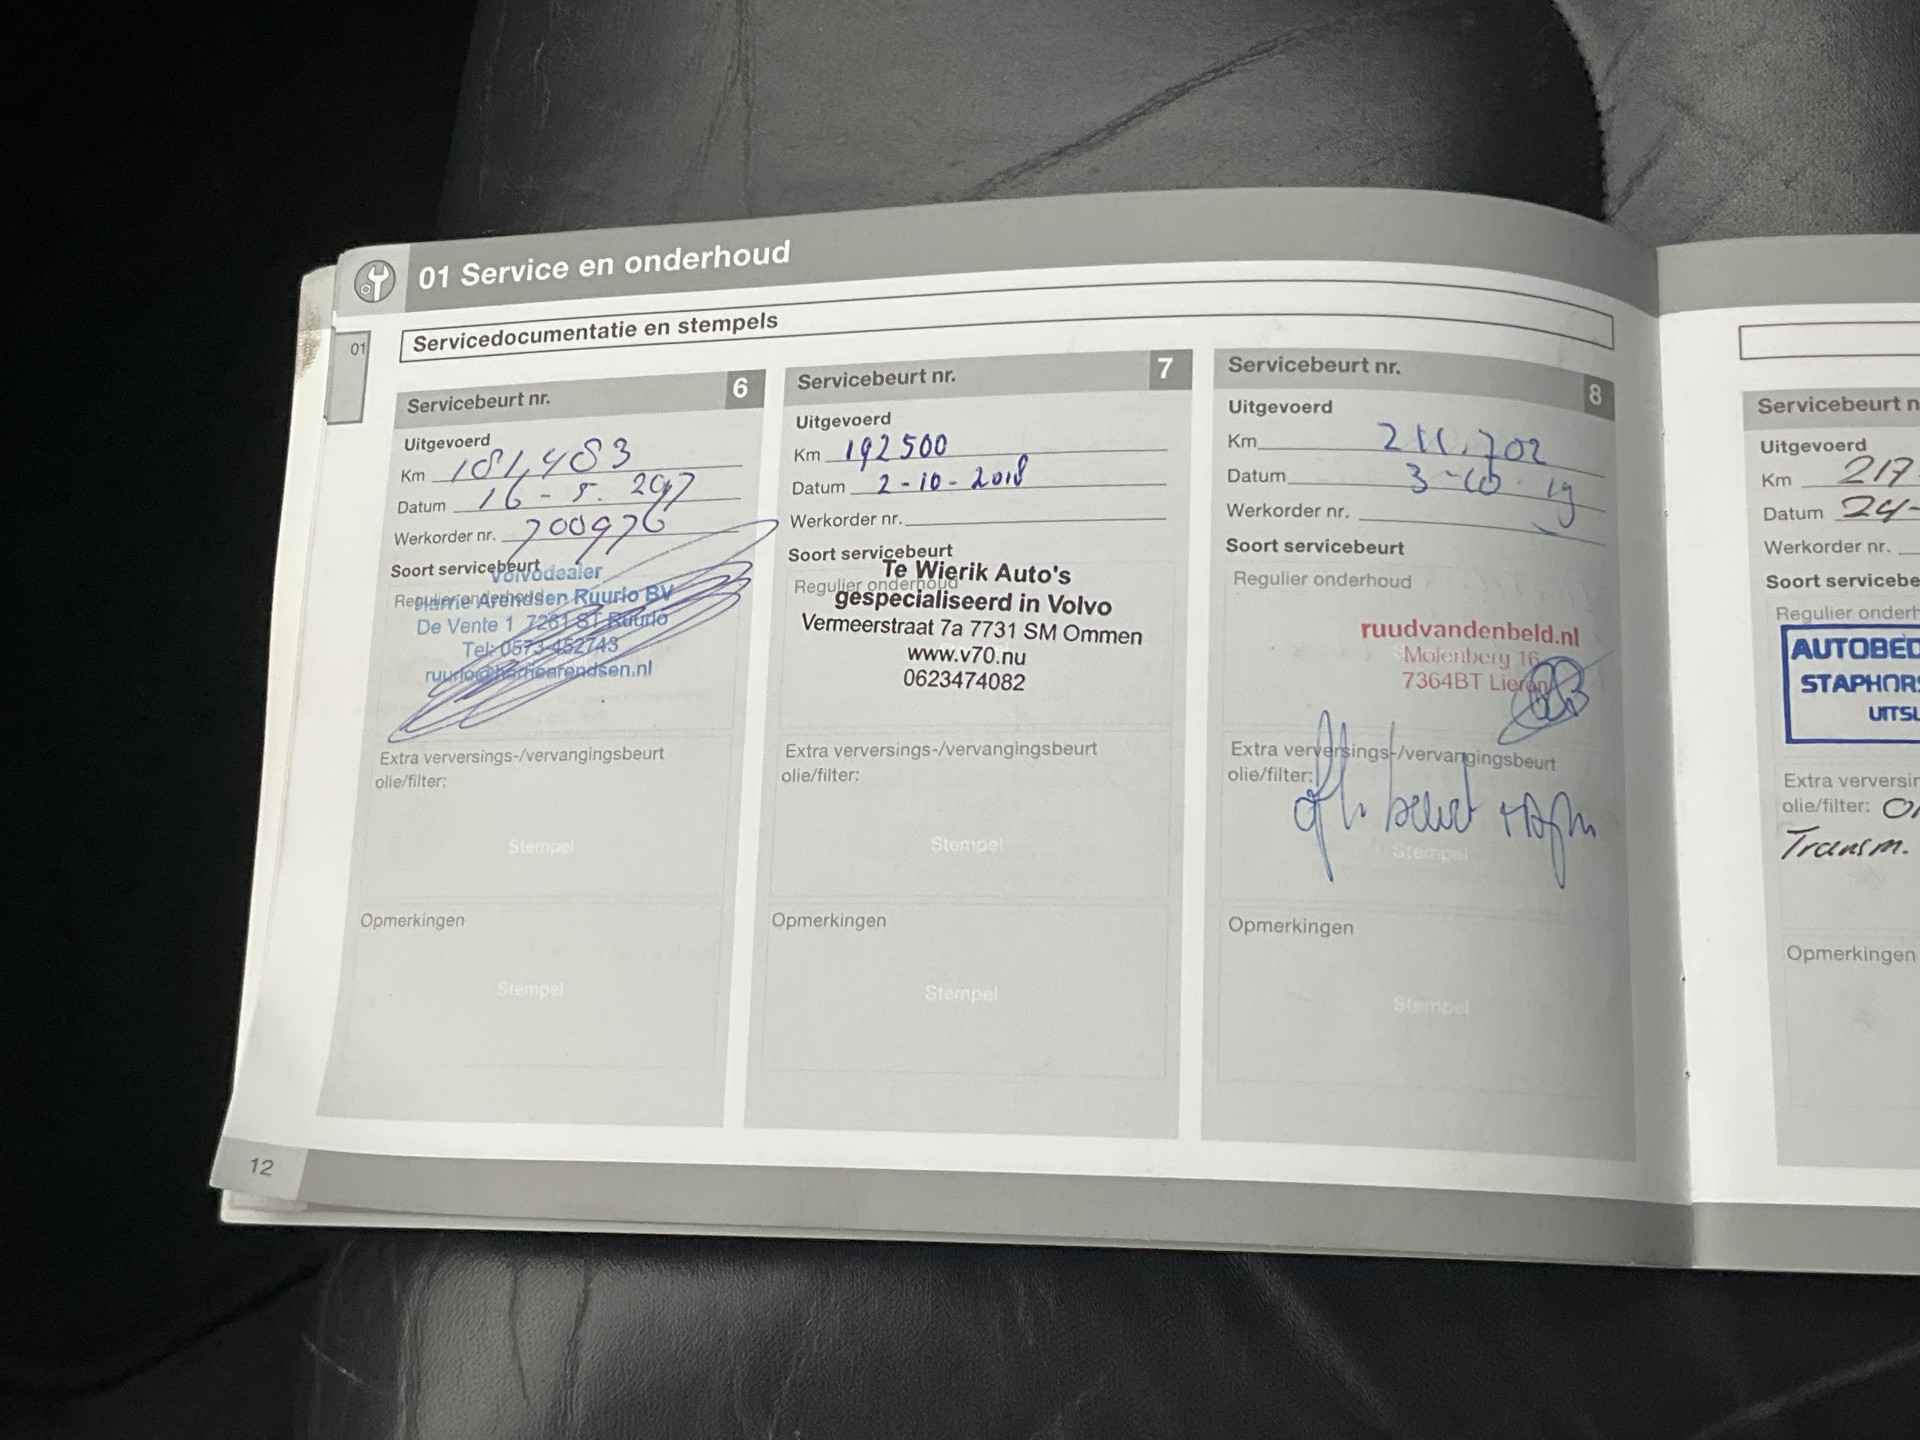 01 Service en onderhoud
01
Servicedocumentatie en stempels
Servicebeurt nr. 6
Uitgevoerd
Km 181,483
Datum 16-5.2017
Werkorder nr. 700976
Soort servicebeurt
Regulier onderhoud
Volvodealer
Harrie Arendsen Ruurlo BV
De Vente 1 7261 ST Ruurlo
Tel: 0573-452743
ruurlo@harriearendsen.nl
Extra verversings-/vervangingsbeurt
olie/filter:
Stempel
Opmerkingen
Stempel
Servicebeurt nr. 7
Uitgevoerd
Km 192500
Datum 2-10-2018
Werkorder nr.
Soort servicebeurt
Regulier onderhoud
Te Wierik Auto's
gespecialiseerd in Volvo
Vermeerstraat 7a 7731 SM Ommen
www.v70.nu
0623474082
Extra verversings-/vervangingsbeurt
olie/filter:
Stempel
Opmerkingen
Stempel
Servicebeurt nr. 8
Uitgevoerd
Km 211.702
Datum 3-10-19
Werkorder nr.
Soort servicebeurt
Regulier onderhoud
ruudvandenbeld.nl
Molenberg 16
7364BT Lieren
Extra verversings-/vervangingsbeurt
olie/filter:
beurt
Stempel
Opmerkingen
Stempel
Servicebeurt n
Uitgevoerd
Km 217
Datum 24-
Werkorder nr.
Soort servicebe
Regulier onderh
AUTOBED
STAPHORS
UITSL
Extra verversin
olie/filter:
Transm.
Opmerkingen
12